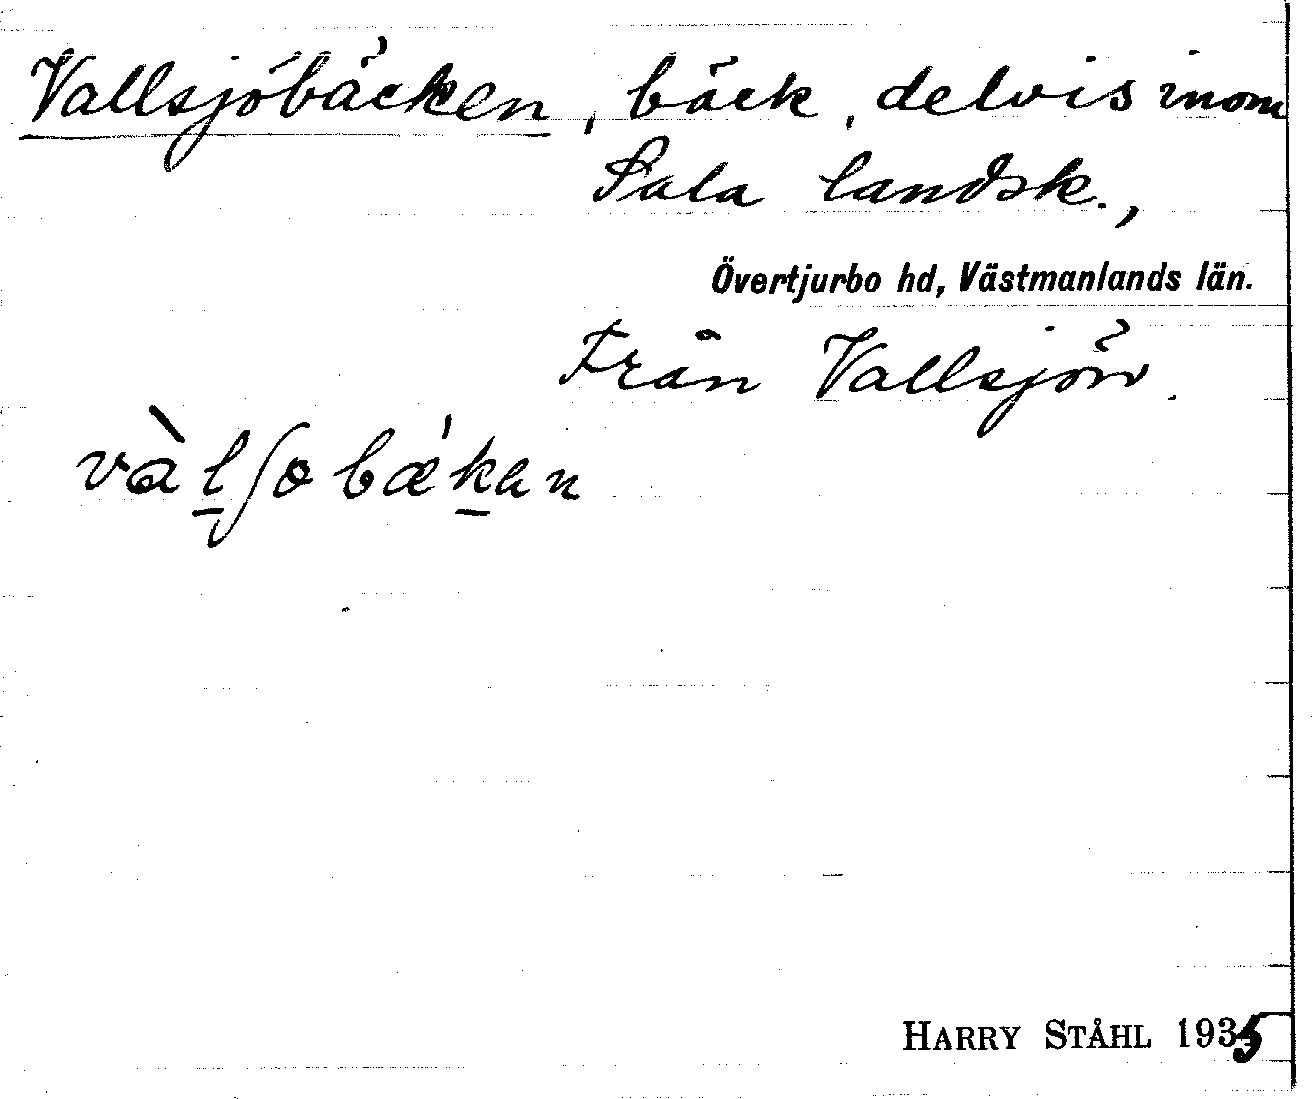 Vallsjöbäcken, bäck, delvis inom
Sala landsk.,
Övertjurbo hd, Västmanlands län.
Från Vallsjön.
vàl̠ʃobæ'k̠an
HARRY STÅHL 1935